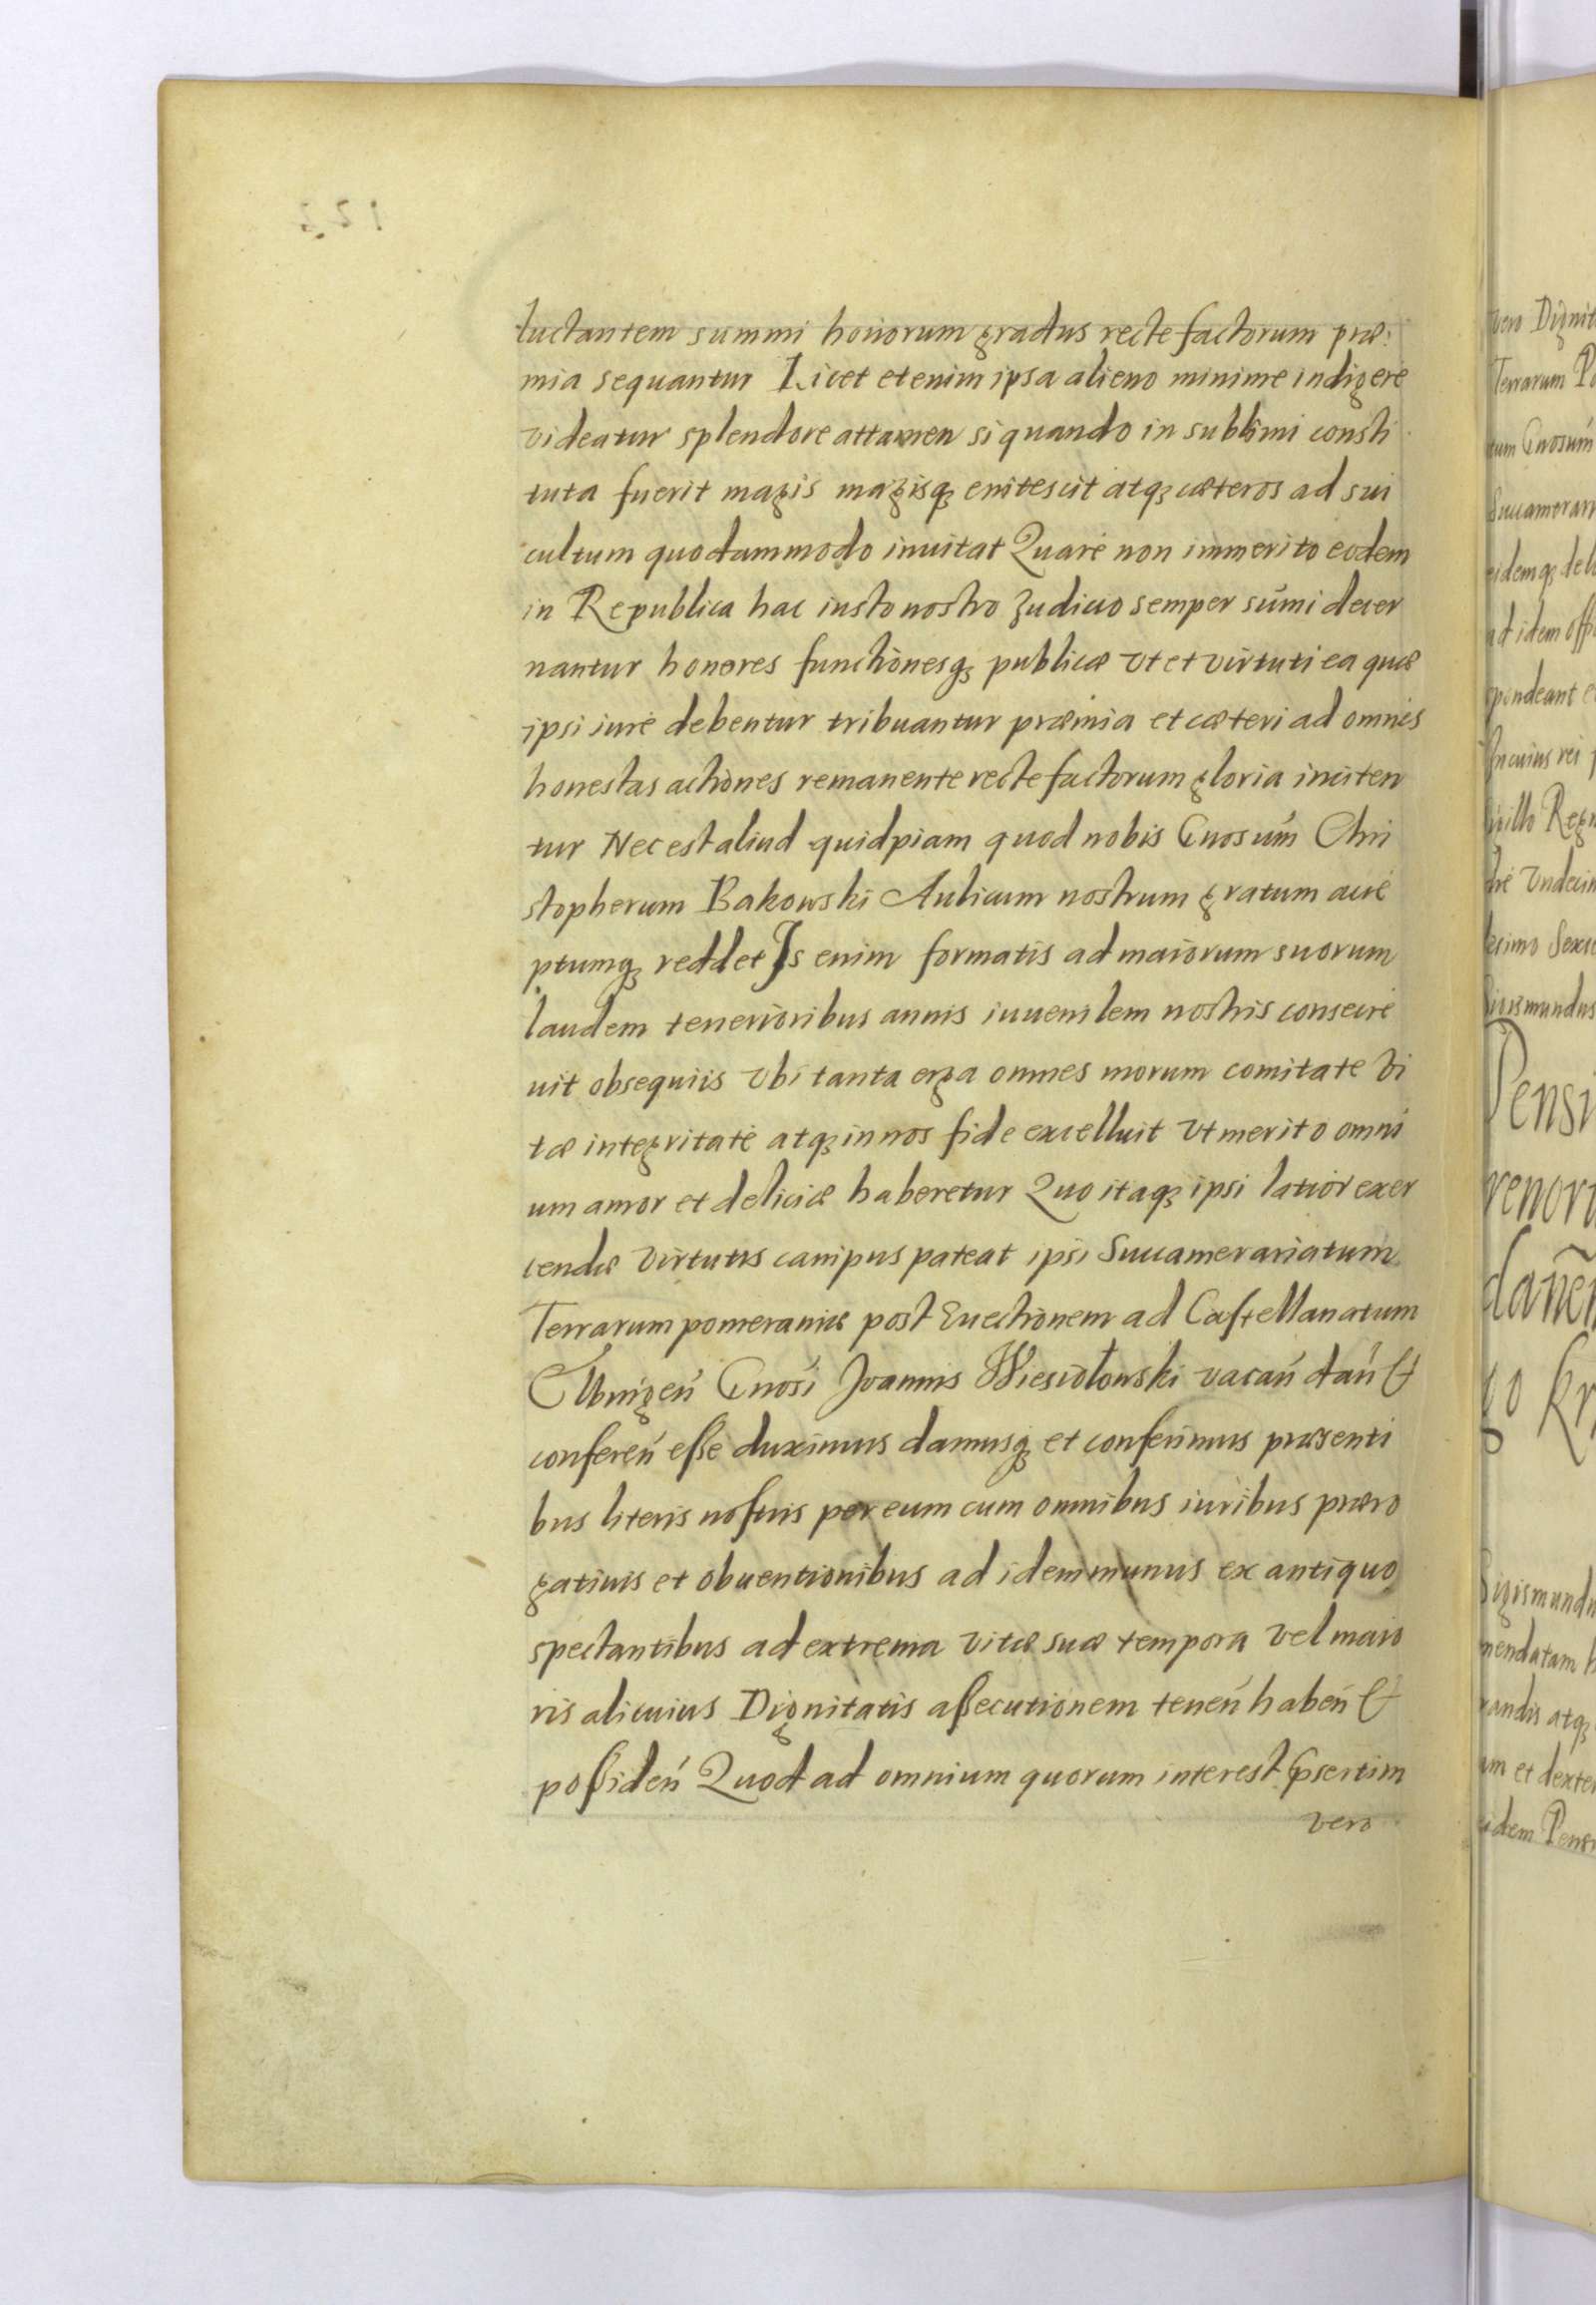 luctantem summi honorum gradus recte factorum præ:
mia sequantur Licet etenim ipsa alieno minime indigere
videatur splendore attamen si quando in sublimi consti
tuta fuerit magis magisq₃ enitescit atq₃ cæteros ad sui
cultum quodammodo inuitat Quare non immerito eodem
in Republica hac iusto nostro Iudicio semper sum̃i decer
nantur honores functionesq₃ publicæ vt et virtuti ea quæ
ipsi iure debentur tribuantur præmia et cæteri ad omnes
honestas actiones remanente recte factorum gloria inciten
tur Nec est aliud quidpiam quod nobis Gnosum̃ Chri
stopherum Bakowski Aulicum nostrum gratum acce
ptumq₃ reddet Is enim formatis ad maiorum suorum
laudem tenerioribus annis iuuenilem nostris consecre
uit obsequiis vbi tanta erga omnes morum comitate vi
tæ integritate atq₃ in nos fide excelluit vt merito omni
um amor et deliciæ haberetur Quo itaq₃ ipsi latior exer
cendæ virtutis campus pateat ipsi Succamerariatum
Terrarum pomeraniæ post Euectionem ad Castellanatum
Elbingeñ Gnosi Joannis Wiesiołowski vacañ dañ &
confereñ esse duximus damusq₃ et conferimus præsenti
bus literis nostris per eum cum omnibus iuribus præro
gatiuis et obuentionibus ad idem munus ex antiquo
spectantibus ad extrema vitæ suæ tempora vel maio
ris alicuius Dignitatis assecutionem teneñ habeñ &
possideñ Quod ad omnium quorum interest p̃sertim
vero
122
vero Dignit
Terrarum Po
tum Gnosum̃
Succamerari
eidemq₃ deb
ad idem offi
pendeant e
In cuius rei p
sigillo Regn
die Vndecim
gesimo Sexce
Sigismundus
Pensi
renoru
dañen
go kr
Sigismundu
mendatam h
randis atq₃
um et dexter
eidem Pensi